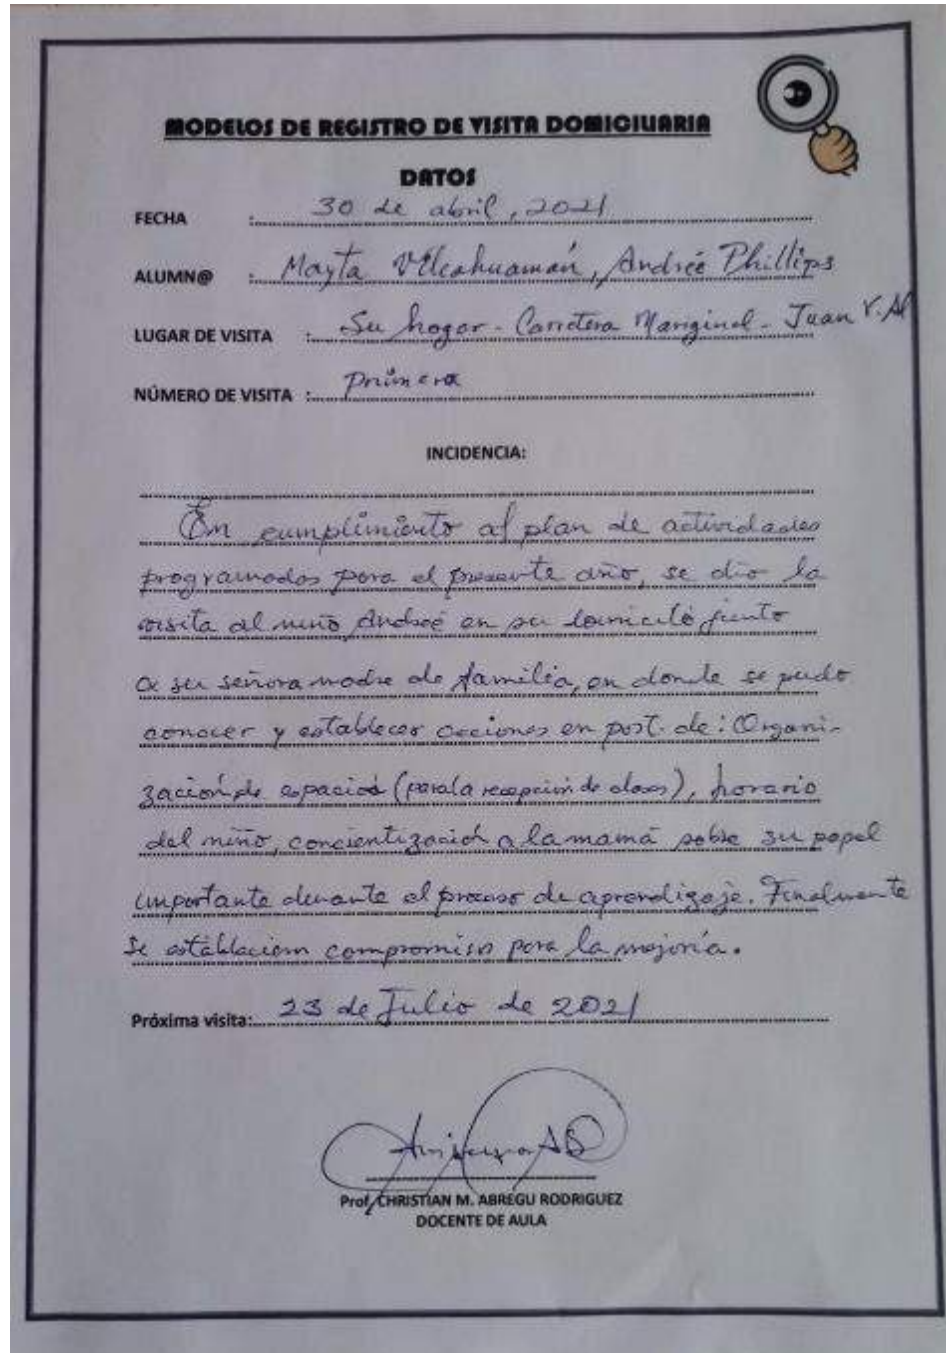 MODELOS DE REGISTRO DE VISITA DOMICILIARIA
DATOS
FECHA : 30 de abril, 2021
ALUMN@ : Mayta Vilcahuamán, Andreé Phillips
LUGAR DE VISITA : Su hogar - Carretera Marginal - Juan V. Al
NÚMERO DE VISITA : Primera
INCIDENCIA:
En cumplimiento al plan de actividades
programados para el presente año, se dio la
visita al niño Andreé en su domicilio junto
a su señora madre de familia, en donde se pudo
conocer y establecer acciones en post. de: Organi-
zación de espacios (para la recepción de clases), horario
del niño, concientización a la mamá sobre su papel
importante durante el proceso de aprendizaje. Finalmente
se establecieron compromisos para la mejoría.
Próxima visita: 23 de Julio de 2021
Prof. CHRISTIAN M. ABREGU RODRIGUEZ
DOCENTE DE AULA